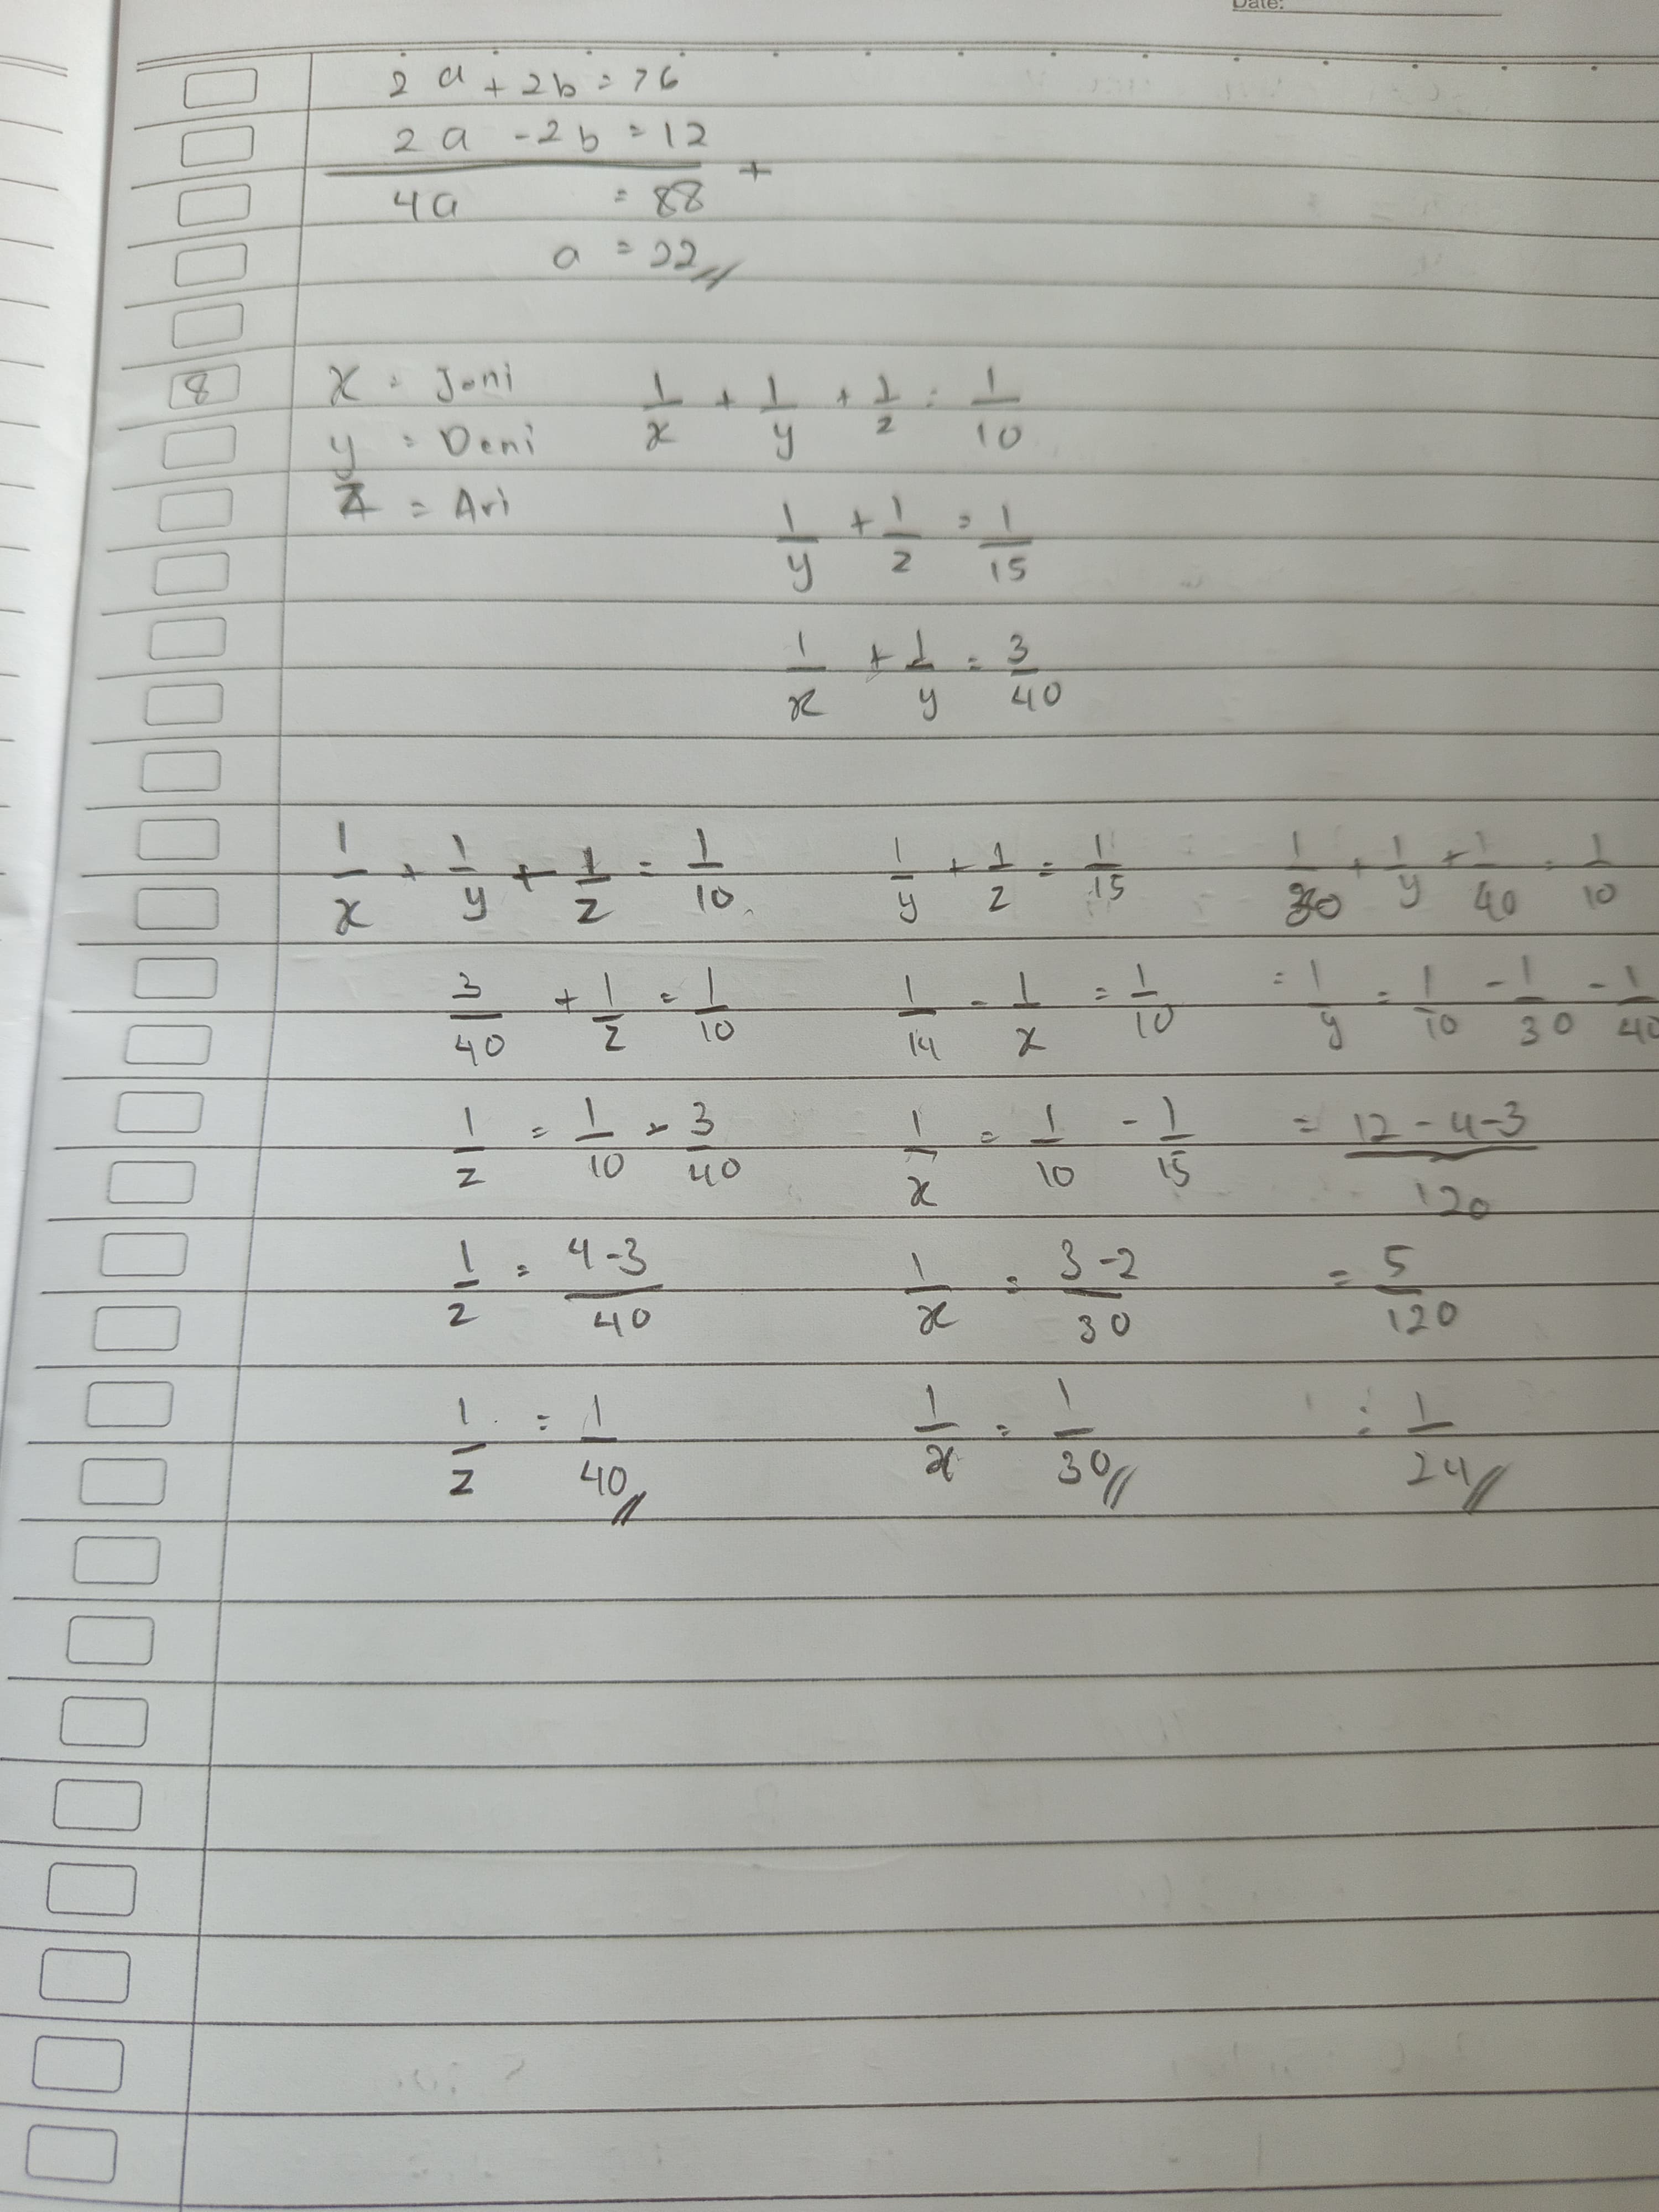 Date:
2a + 2b = 76
2a - 2b = 12
+
4a = 88
a = 22
8
x = Joni
y = Deni
z = Ari
1/x + 1/y + 1/z = 1/10
1/y + 1/z = 1/15
1/x + 1/y = 3/40
1/x + 1/y + 1/z = 1/10
3/40 + 1/z = 1/10
1/z = 1/10 - 3/40
1/z = 4-3/40
1/z = 1/40
1/y + 1/z = 1/15
1/14 - 1/x = 1/10
1/x = 1/10 - 1/15
1/x = 3-2/30
1/x = 1/30
1/30 + 1/y + 1/40 = 1/10
= 1/y = 1/10 - 1/30 - 1/40
= 12-4-3/120
= 5/120
= 1/24